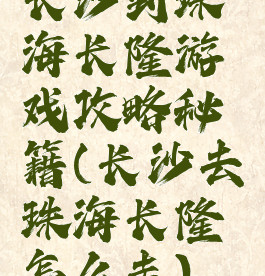 长沙到珠
海长隆游
戏攻略秘
籍(长沙去
珠海长隆
怎么走)